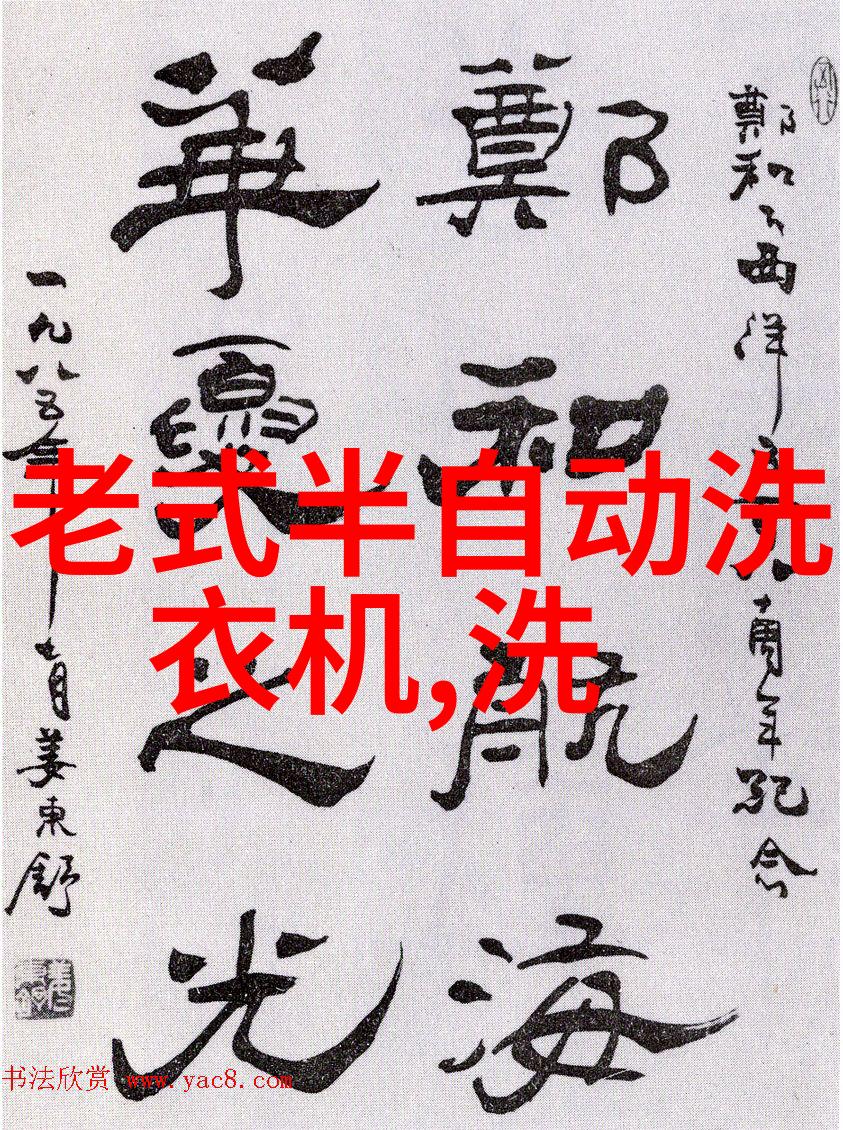 鄭和下西洋 周年紀念
鄭和航海
華夏之光
一九八五年七月姜東舒
老式半自动洗
衣机,洗
书法欣赏 www.yac8.com